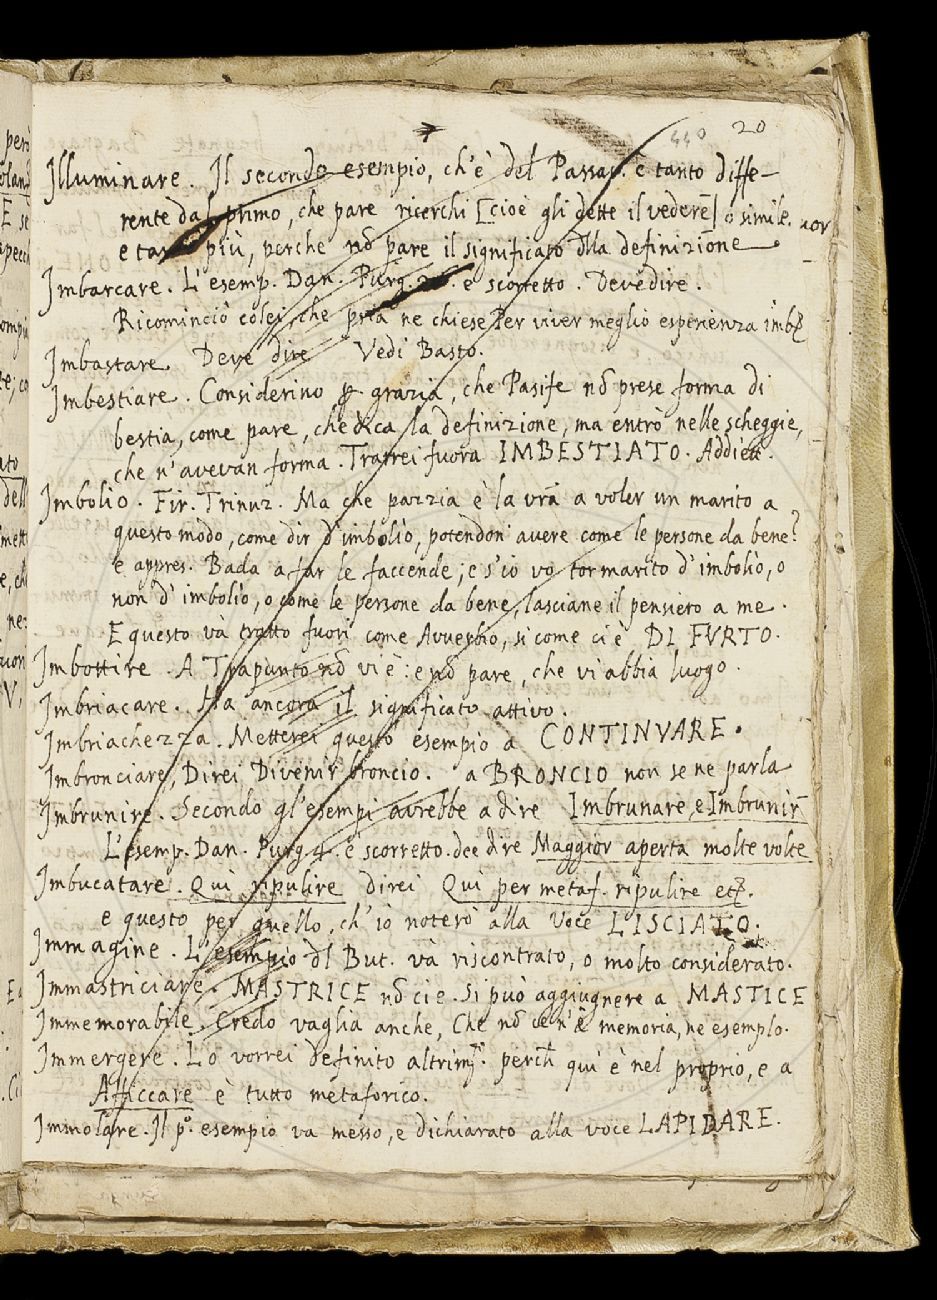 440 20
Illuminare. Il secondo esempio, ch'è del Passav. è tanto diffe-
rente dal primo, che pare ricerchi [cioè gli dette il vedere] o simile.
e tan più, perche nō pare il significato dlla definizione.
Imbarcare. L'esemp. Dan. Purg. 26. è scorretto. Deve dire.
Ricominciò colei, che pria ne chiese Per viver meglio esperienza imb
Imbastare Deve dire Vedi Basto.
Imbestiare. Considerino p grazia, che Pasife nō prese forma di
bestia, come pare, che dica la definizione, ma entrò nelle scheggie,
che n'avevan forma. Trarrei fuora IMBESTIATO. Addiett.
Imbolio. Fir. Trinuz. Ma che pazzia è la vrā a voler un marito a
questo modo, come dir d'imbolìo, potendon avere come le persone da bene?
e appres. Bada a far le faccende; e s'io vo tor marito d'imbolìo, o
non d'imbolìo, o come le persone da bene, lasciane il pensiero a me.
E questo và tratto fuori come Avverbio, si come ci è DI FVRTO.
Imbottire. A Trapunto nō vi è: e nō pare, che vi abbia luogo.
Imbriacare. Ha ancora il significato attivo.
Imbriachezza. Metterei questo esempio a CONTINVARE.
Imbronciare, Direi Divenir broncio. a BRONCIO non se ne parla
Imbrunire. Secondo gl'esempi avrebbe a dire Imbrunare, e Imbrunir
L'esemp. Dan. Purg. 4. è scorretto. dee dire Maggior aperta molte volte
Imbucatare. Qui ripulire direi Qui per metaf. ripulire etc.
e questo per quello, ch'io noterò alla voce LISCIATO.
Immagine. L'esempio dl But. và riscontrato, o molto considerato.
Immastriciare. MASTRICE nō ci è. Si può aggiugnere a MASTICE
Immemorabile. Credo vaglia anche, Che nō ce n'è memoria, ne esemplo.
Immergere. Lo vorrei definito altrim. perch qui è nel proprio, e a
Afficcare è tutto metaforico.
Immolare. Il p.º esempio va messo, e dichiarato alla voce LAPIDARE.